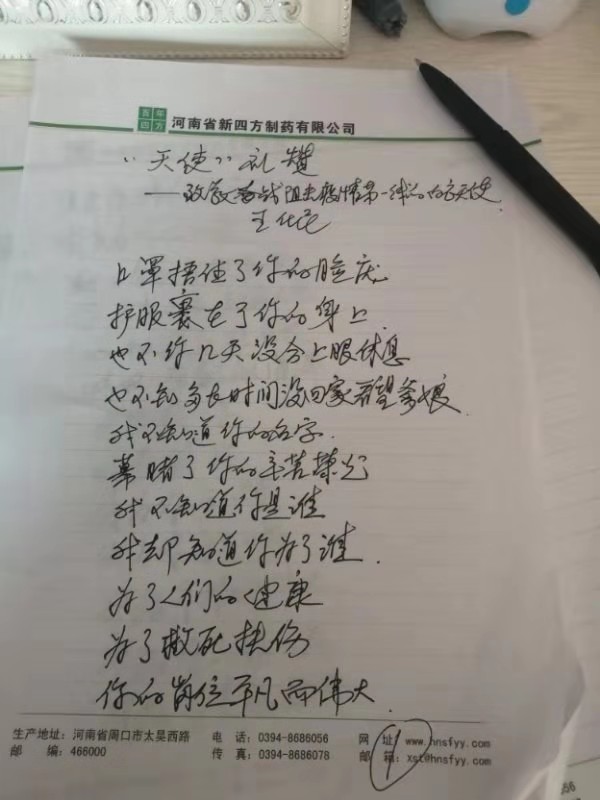 百年
四方
河南省新四方制药有限公司
“天使”礼赞
——致敬奋战阻击疫情第一线的白衣天使
口罩捂住了你的脸庞
护服裹在了你的身上.
也不知几天没合上眼休息
也不知多长时间没回家看望爹娘.
我不知道你的名字.
幕睹了你的辛苦荣光
我不知道你是谁
我却知道你为了谁.
为了人们的健康
为了救死扶伤
你的岗位平凡而伟大.
生产地址：河南省周口市太昊西路 电 话：0394-8686056 网 址：www.hnsfyy.com
邮 编：466000 传 真：0394-8686078 邮 箱：xsf@hnsfyy.com
1
056